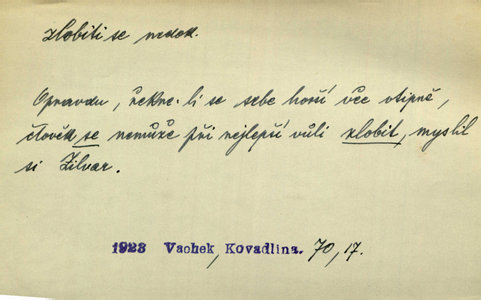 zlobiti se nedok.
Opravdu, řekne-li se sebe horší věc vtipně,
člověk se nemůže při nejlepší vůli zlobit, myslil
si Žilvar.
1923 Vachek, Kovadlina. 70, 17.